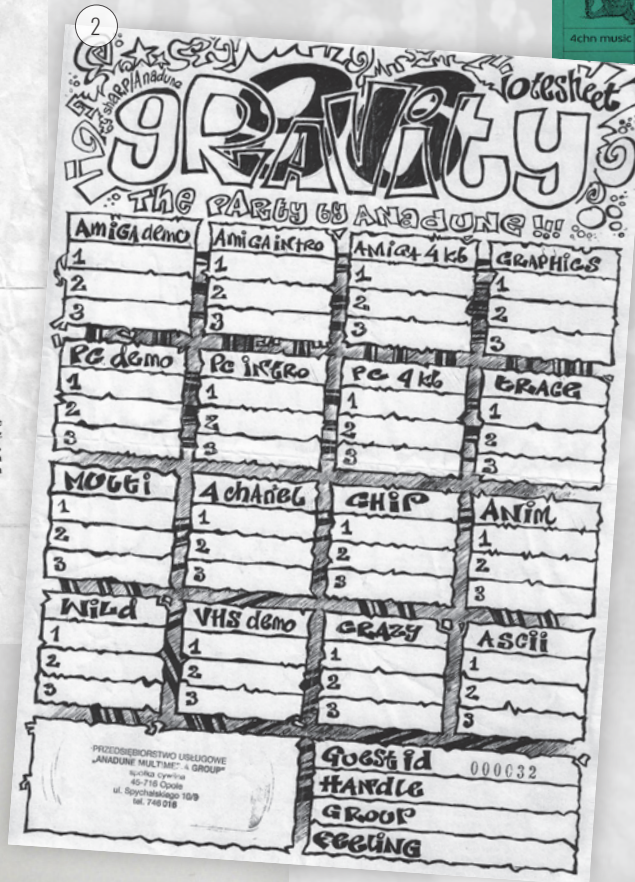 2
4chn music
by SHARP/Anadune
gRAVity
Votesheet
The PARTY by ANADUNE!!!
AMiGA demo
1
2
3
AMiGA iNtRo
1
2
3
AMiGA 4 kb
1
2
3
GRAPHiCS
1
2
3
PC demo
1
2
3
PC iNtRo
1
2
3
PC 4 kb
1
2
3
tRACE
1
2
3
MULti
1
2
3
4 chANel
1
2
3
CHiP
1
2
3
ANiM
1
2
3
WiLd
1
2
3
VHS demo
1
2
3
CRAZY
1
2
3
ASCii
1
2
3
PRZEDSIĘBIORSTWO USŁUGOWE
„ANADUNE MULTIMEDIA GROUP"
spółka cywilna
45-716 Opole
ul. Spychalskiego 10/9
tel. 746 018
Guest id 000032
HANdLE
GROUP
FEELiNG